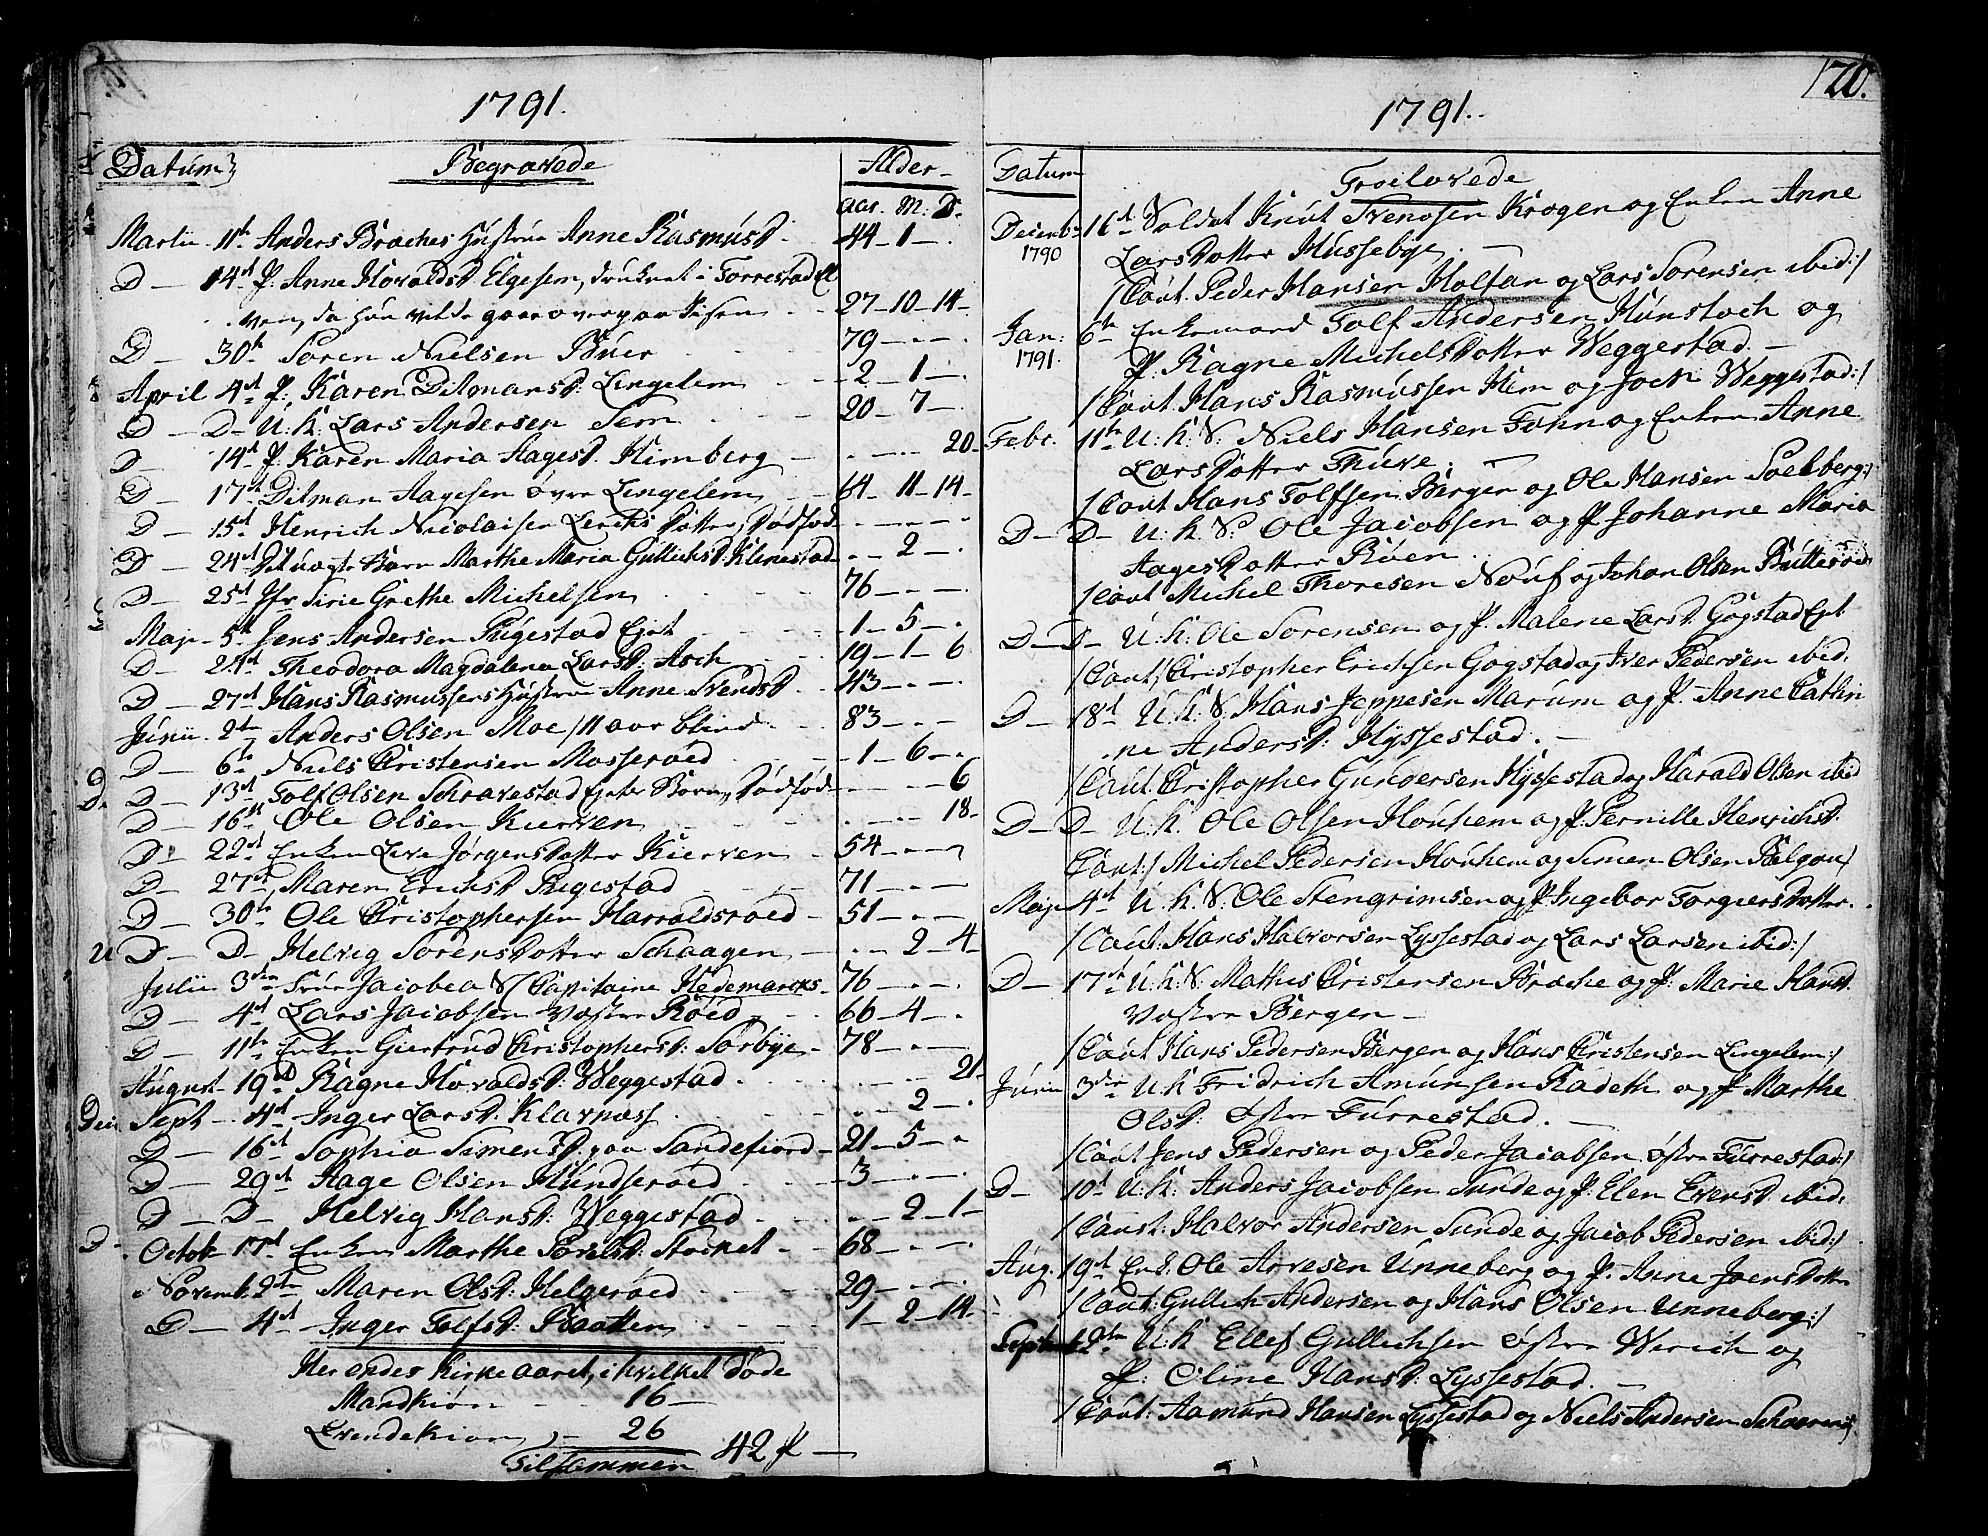 1791.
Datum
Begravede
Alder
Aar. M: D.
Martii 11te Anders Braches Hustrue Anne Rasmusd. 44 - 1 -
D - 14d P. Anne Horaldsd Elgesem, druknet i Forrestad El
ven, da hun vilde gaae over paa Jisen 27 - 10 - 14
D - 30te Soren Nielsen Buer 79
April 4d P. Karen Ditmansd: Lingelem 2 - 1 -
D - D - U: K: Lars Andersen Sem 20 - 7 -
D - 14d P. Karen Maria Aagesd. Himberg 20
D - 17d Ditman Aagesen øvre Lingelem 64 - 11 - 14
D - 15d Henrich Nicolaisen Lerchs Dotter, Dødfød
D - 24d Marthe Maria Gullichsd. Klinestad 2
D - 25d Jfr Sirie Grethe Michelsen 76
Maji 5te Jens Andersen Rugestad Eyet 1 - 5 -
D - 24d Theodora Magdalena Larsd. Asch 19 - 1 - 6
D - 27d Hans Rasmussens Hustrue Anne Svendsd. 43
Junii 2den Anders Olsen Moe / 11 aar blind 83
D - 6te Niels Christensen Mosserøed 1 - 6 -
D - 13d Tolf Olsen Schravestad Eyets Barn, Dødfød 6
D - 16d Ole Olsen Kierven 18
D - 22d Enken Live Jørgensdotter Kierven 54
D - 27d Maren Erichsd Rugestad 71
D - 30te Ole Christophersen Harraldsroed 51
D - D - Helvig Sorensdotter Schaagen 2 - 4
Julii 3die Frue Jacobea S/ Capitaine Hedemarcks 76
D - 4d Lars Jacobsen Vestre Røed 66 - 4 -
D - 11te Enken Giertrud Christophersd: Sorbye 78
August 19d Ragne Horaldsd. Weggestad 21
Sept 4d Inger Larsd. Klavnæss 2
D - 16d Sophia Simensd. paa Sandefiord 21 - 5 -
D - 29d Aage Olsen Mundserøed 3
D - D - Helvig Hansd. Weggestad 2 - 1
Octob 17d Enken Marthe Stocket 68
Novemb. 2den Maren Olsd: Helgerøed 29
D - 4d Inger Tolfsd: Raatten 1 - 2 - 14
Her endes Kirke aaret, i hvilket døde
Mandkiøn 16
Qvendekiøn 26
Tilsammen 42 P
120.
1791.
Datum
Troelovede
Decemb. 16d Soldat Knut Svensen Krogen og Enken Anne
1790
Larsdotter Hussebye
/Caut. Peder Hansen Holtan og Lars Sorensen ibid:/
Jan: 6te Enkemand Tolf Andersen Hunstoch og
1791
P. Ragne Michelsdotter Weggestad
/Caut Hans Rasmussen Hem og Joen Weggestad:/
Febr. 11te U: K: S: Niels Hansen Fohn og Enken Anne
Larsdotter Thuve.
/Caut Hans Tolfsen Bergen og Ole Hansen Solberg:/
D - D - U. K. S. Ole Jacobsen og P Johanne Maria
Aagesdotter Røen
/Caut Michel Thoresen Nouf og Johan Olsen Butterød
D - D - U: K: Ole Sorensen og P Malene Larsd. Gogstad Eyet
/Caut/ Christopher Erichsen Gogstad og Iver Pedersen ibid.
D - 18d U: K: S. Hans Jeppesen Marum og P. Anne Cathri
ne Andersd: Hyssestad.
/Caut: Christopher Gundersen Hyssestad og Harald Olsen ibid
D - D - U. K. Ole Olsen Houhem og P. Pernille Henrichsd.
Caut:/ Michel Pedersen Houhem og Simen Olsen Rølgou/
Maji 4d U. K. S. Ole Stengrimsen og P. Ingebor Torgiersdotter
/Caut: Hans Halvorsen Lyssestad og Lars Larsen ibid:/
D - 17de U: K: S. Mathis Christensen Brache og P: Marie Hansd.
Vestre Bergen
/Caut Hans Pedersen Bergen og Hans Christensen Lingelem:/
Junii 3die U: K Fridrich Amunsen Radeth og P Marthe
Olsd: Østre Furrestad.
/Caut Jens Pedersen og Peder Jacobsen østre Furrestad:/
D - 10d U. K: Anders Jacobsen Sunde og P. Elen Evensd. ibid.
/Caut: Halvor Andersen Sunde og Jacob Pedersen ibid:/
Aug. 19d Enk. Ole Arvesen Unneberg og P. Anne Joensdotter
/Caut: Gullich Andersen og Hans Olsen Unneberg:/
Septbr 12te U: K Ellef Gullichsen Østre Werich og
P: Oline Hansd: Lyssestad.
/Caut: Aamund Hansen Lyssestad og Niels Andersen